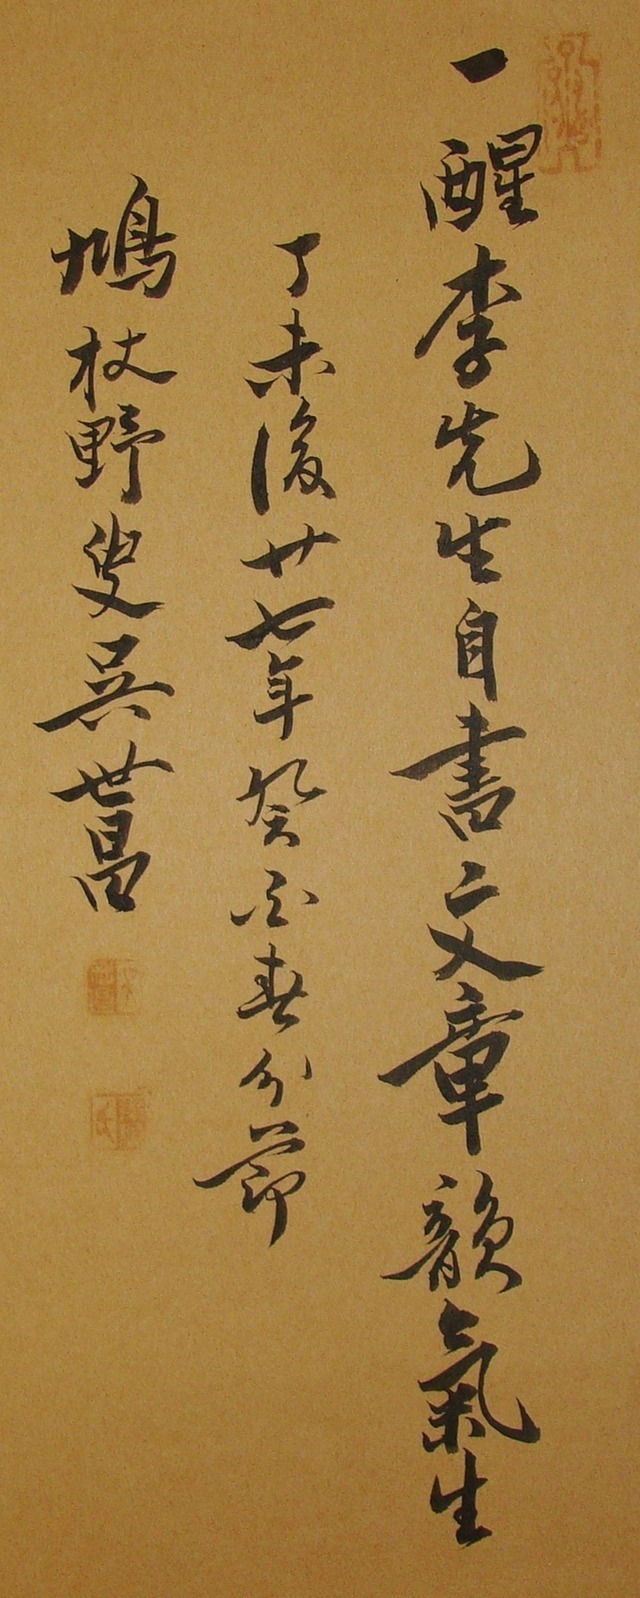 一醒李先生自書文章韻氣生
丁未後廿七年癸酉春分節
鳩杖野叟吳世昌